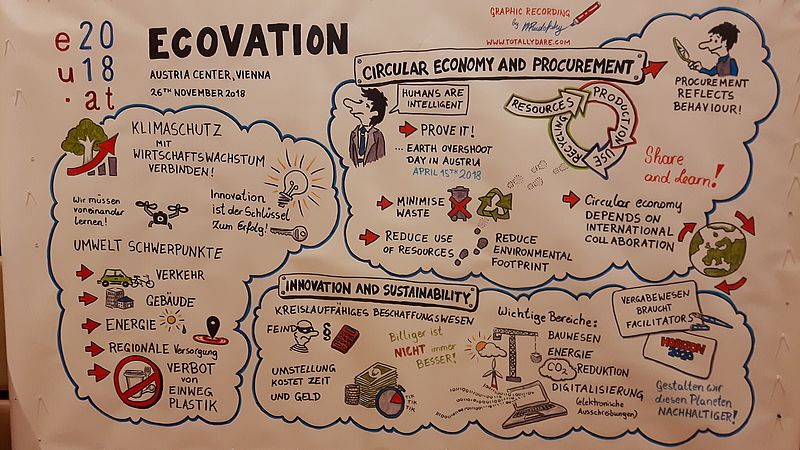 e 20
u 18
.at
ECOVATION
AUSTRIA CENTER, VIENNA
26TH NOVEMBER 2018
GRAPHIC RECORDING
by
WWW.TOTALLYDARE.COM
KLIMASCHUTZ
MIT
WIRTSCHAFTSWACHSTUM
VERBINDEN!
Wir müssen
voneinander
lernen!
Innovation
ist der Schlüssel
zum Erfolg!
UMWELT SCHWERPUNKTE
VERKEHR
GEBÄUDE
ENERGIE
REGIONALE Versorgung
VERBOT
von
EINWEG
PLASTIK
CIRCULAR ECONOMY AND PROCUREMENT
PROCUREMENT
REFLECTS
BEHAVIOUR!
HUMANS ARE
INTELLIGENT
PROVE IT!
... EARTH OVERSHOOT
DAY IN AUSTRIA
APRIL 15TH 2018
RESOURCES
PRODUCTION
USE
RECYCLING
Share
and Learn!
MINIMISE
WASTE
REDUCE USE
OF RESOURCES
REDUCE
ENVIRONMENTAL
FOOTPRINT
Circular economy
DEPENDS ON
INTERNATIONAL
COLLABORATION
INNOVATION AND SUSTAINABILITY
KREISLAUFFÄHIGES BESCHAFFUNGSWESEN
FEIND
§
UMSTELLUNG
KOSTET ZEIT
UND GELD
TIK
TIK
Billiger ist
NICHT immer
BESSER!
Wichtige Bereiche:
BAUWESEN
ENERGIE
CO2 REDUKTION
DIGITALISIERUNG
(elektronische
Ausschreibungen)
VERGABEWESEN
BRAUCHT
FACILITATORS
HORIZON
2020
Gestalten wir
diesen Planeten
NACHHALTIGER!